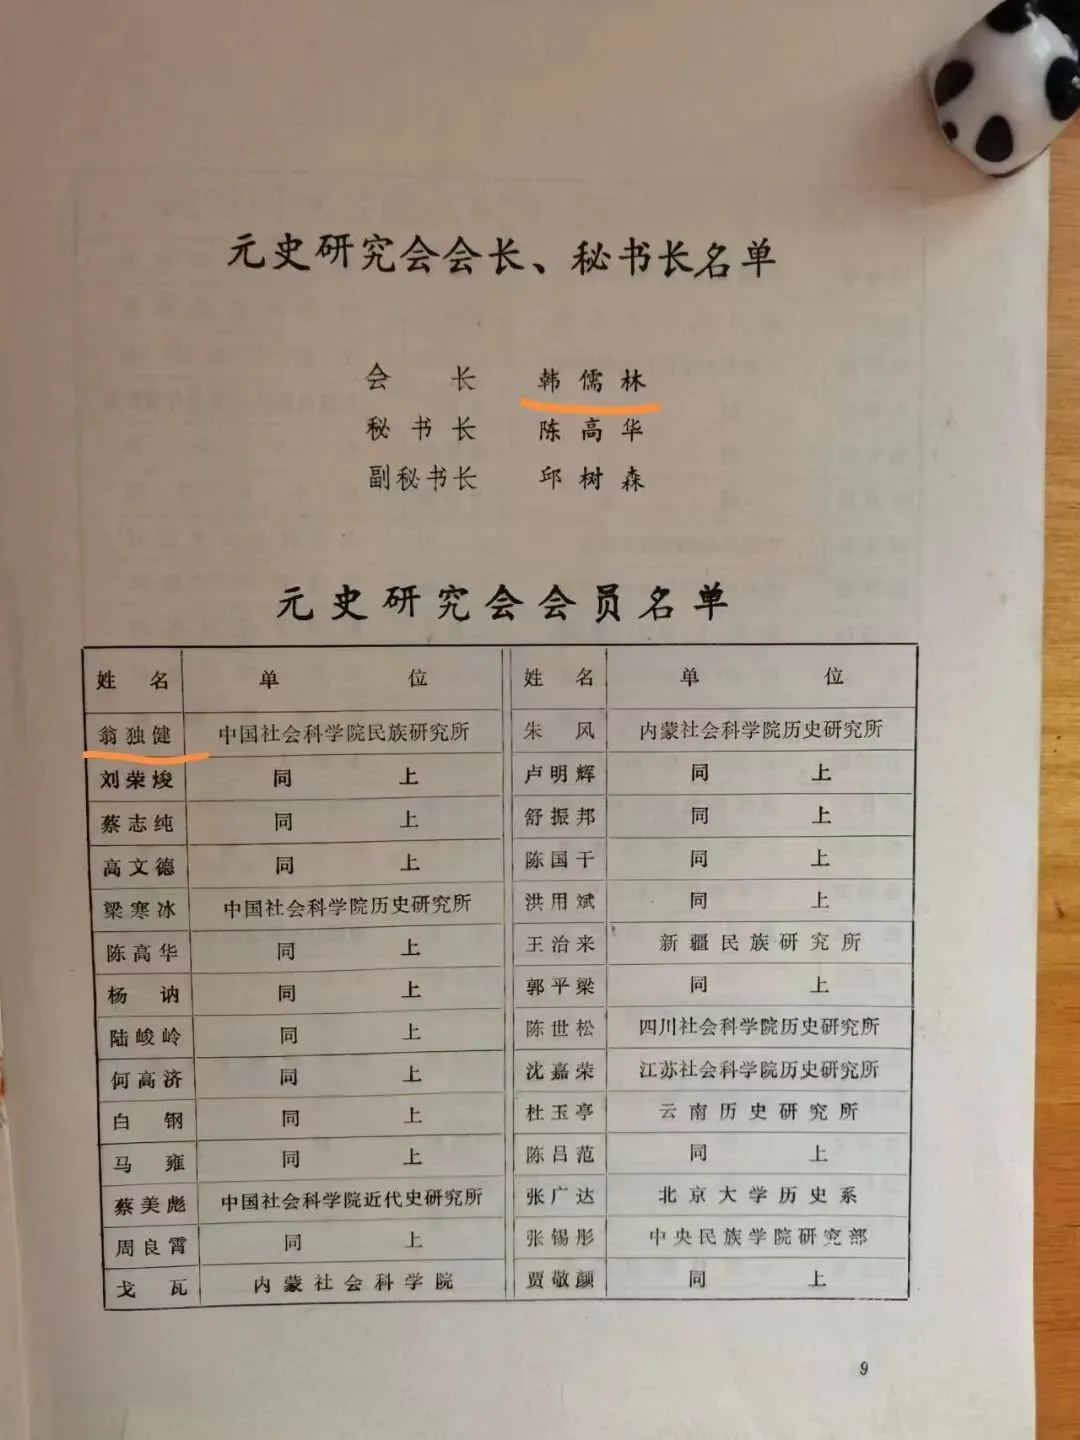 元史研究会会长、秘书长名单
会长 韩儒林
秘书长 陈高华
副秘书长 邱树森
元史研究会会员名单
姓名 单位 姓名 单位
翁独健 中国社会科学院民族研究所 朱风 内蒙社会科学院历史研究所
刘荣焌 同上 卢明辉 同上
蔡志纯 同上 舒振邦 同上
高文德 同上 陈国干 同上
梁寒冰 中国社会科学院历史研究所 洪用斌 同上
陈高华 同上 王治来 新疆民族研究所
杨讷 同上 郭平梁 同上
陆峻岭 同上 陈世松 四川社会科学院历史研究所
何高济 同上 沈嘉荣 江苏社会科学院历史研究所
白钢 同上 杜玉亭 云南历史研究所
马雍 同上 陈吕范 同上
蔡美彪 中国社会科学院近代史研究所 张广达 北京大学历史系
周良霄 同上 张锡彤 中央民族学院研究部
戈瓦 内蒙社会科学院 贾敬颜 同上
9